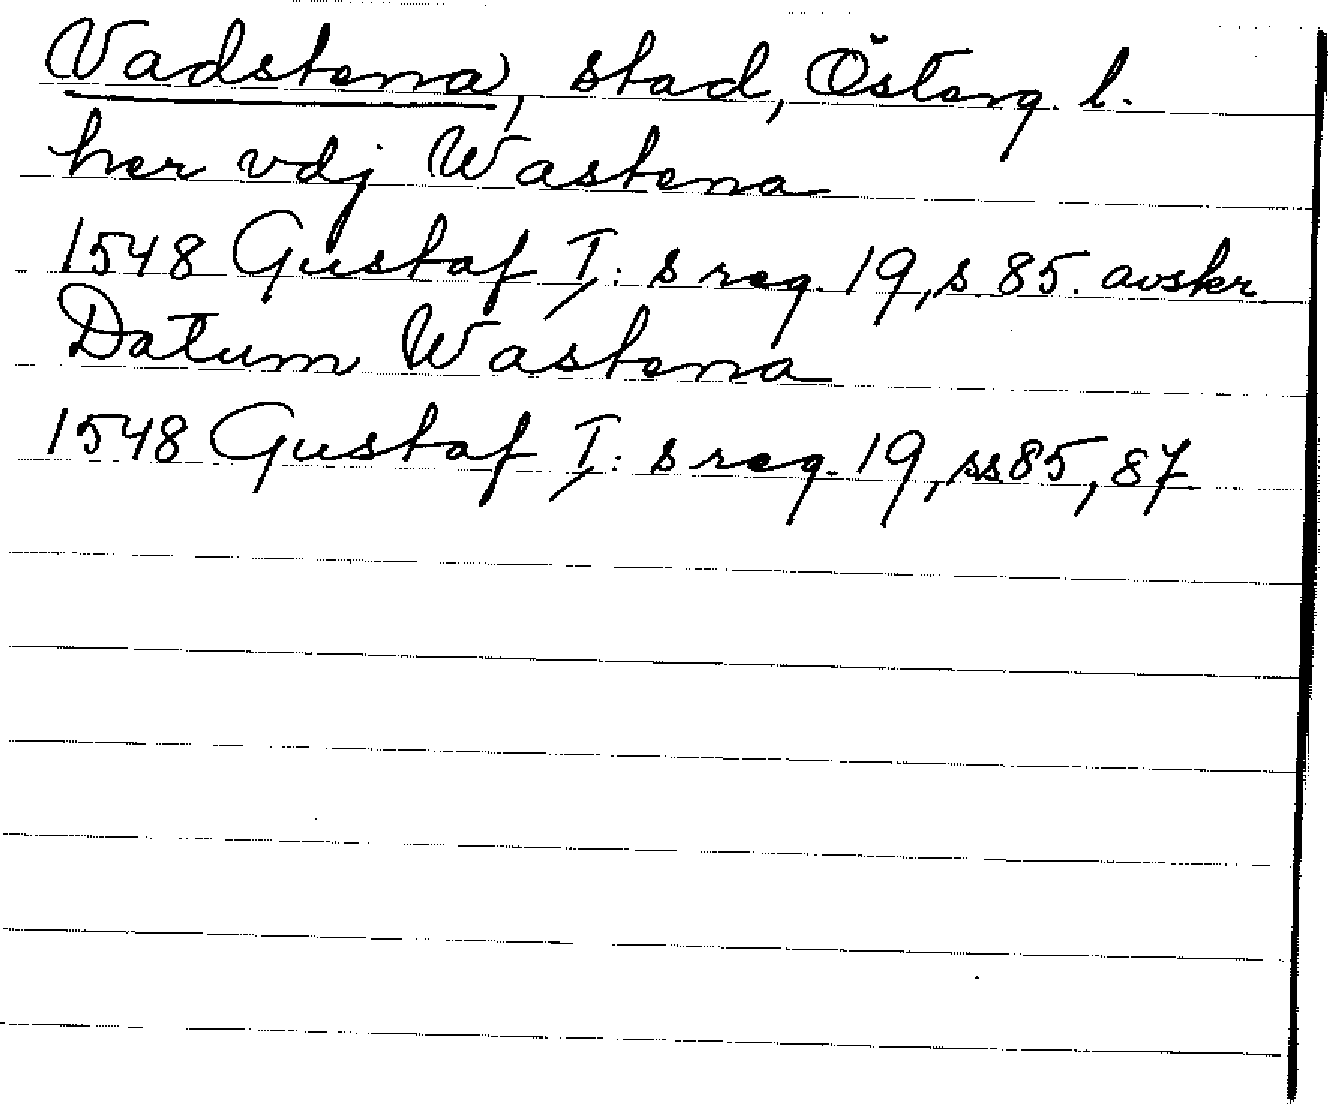 Vadstena, stad, Österg. l.
her vdj Wastena
1548 Gustaf I: s reg. 19, s 85. avskr
Datum Wastena
1548 Gustaf I: s reg. 19, ss 85, 87